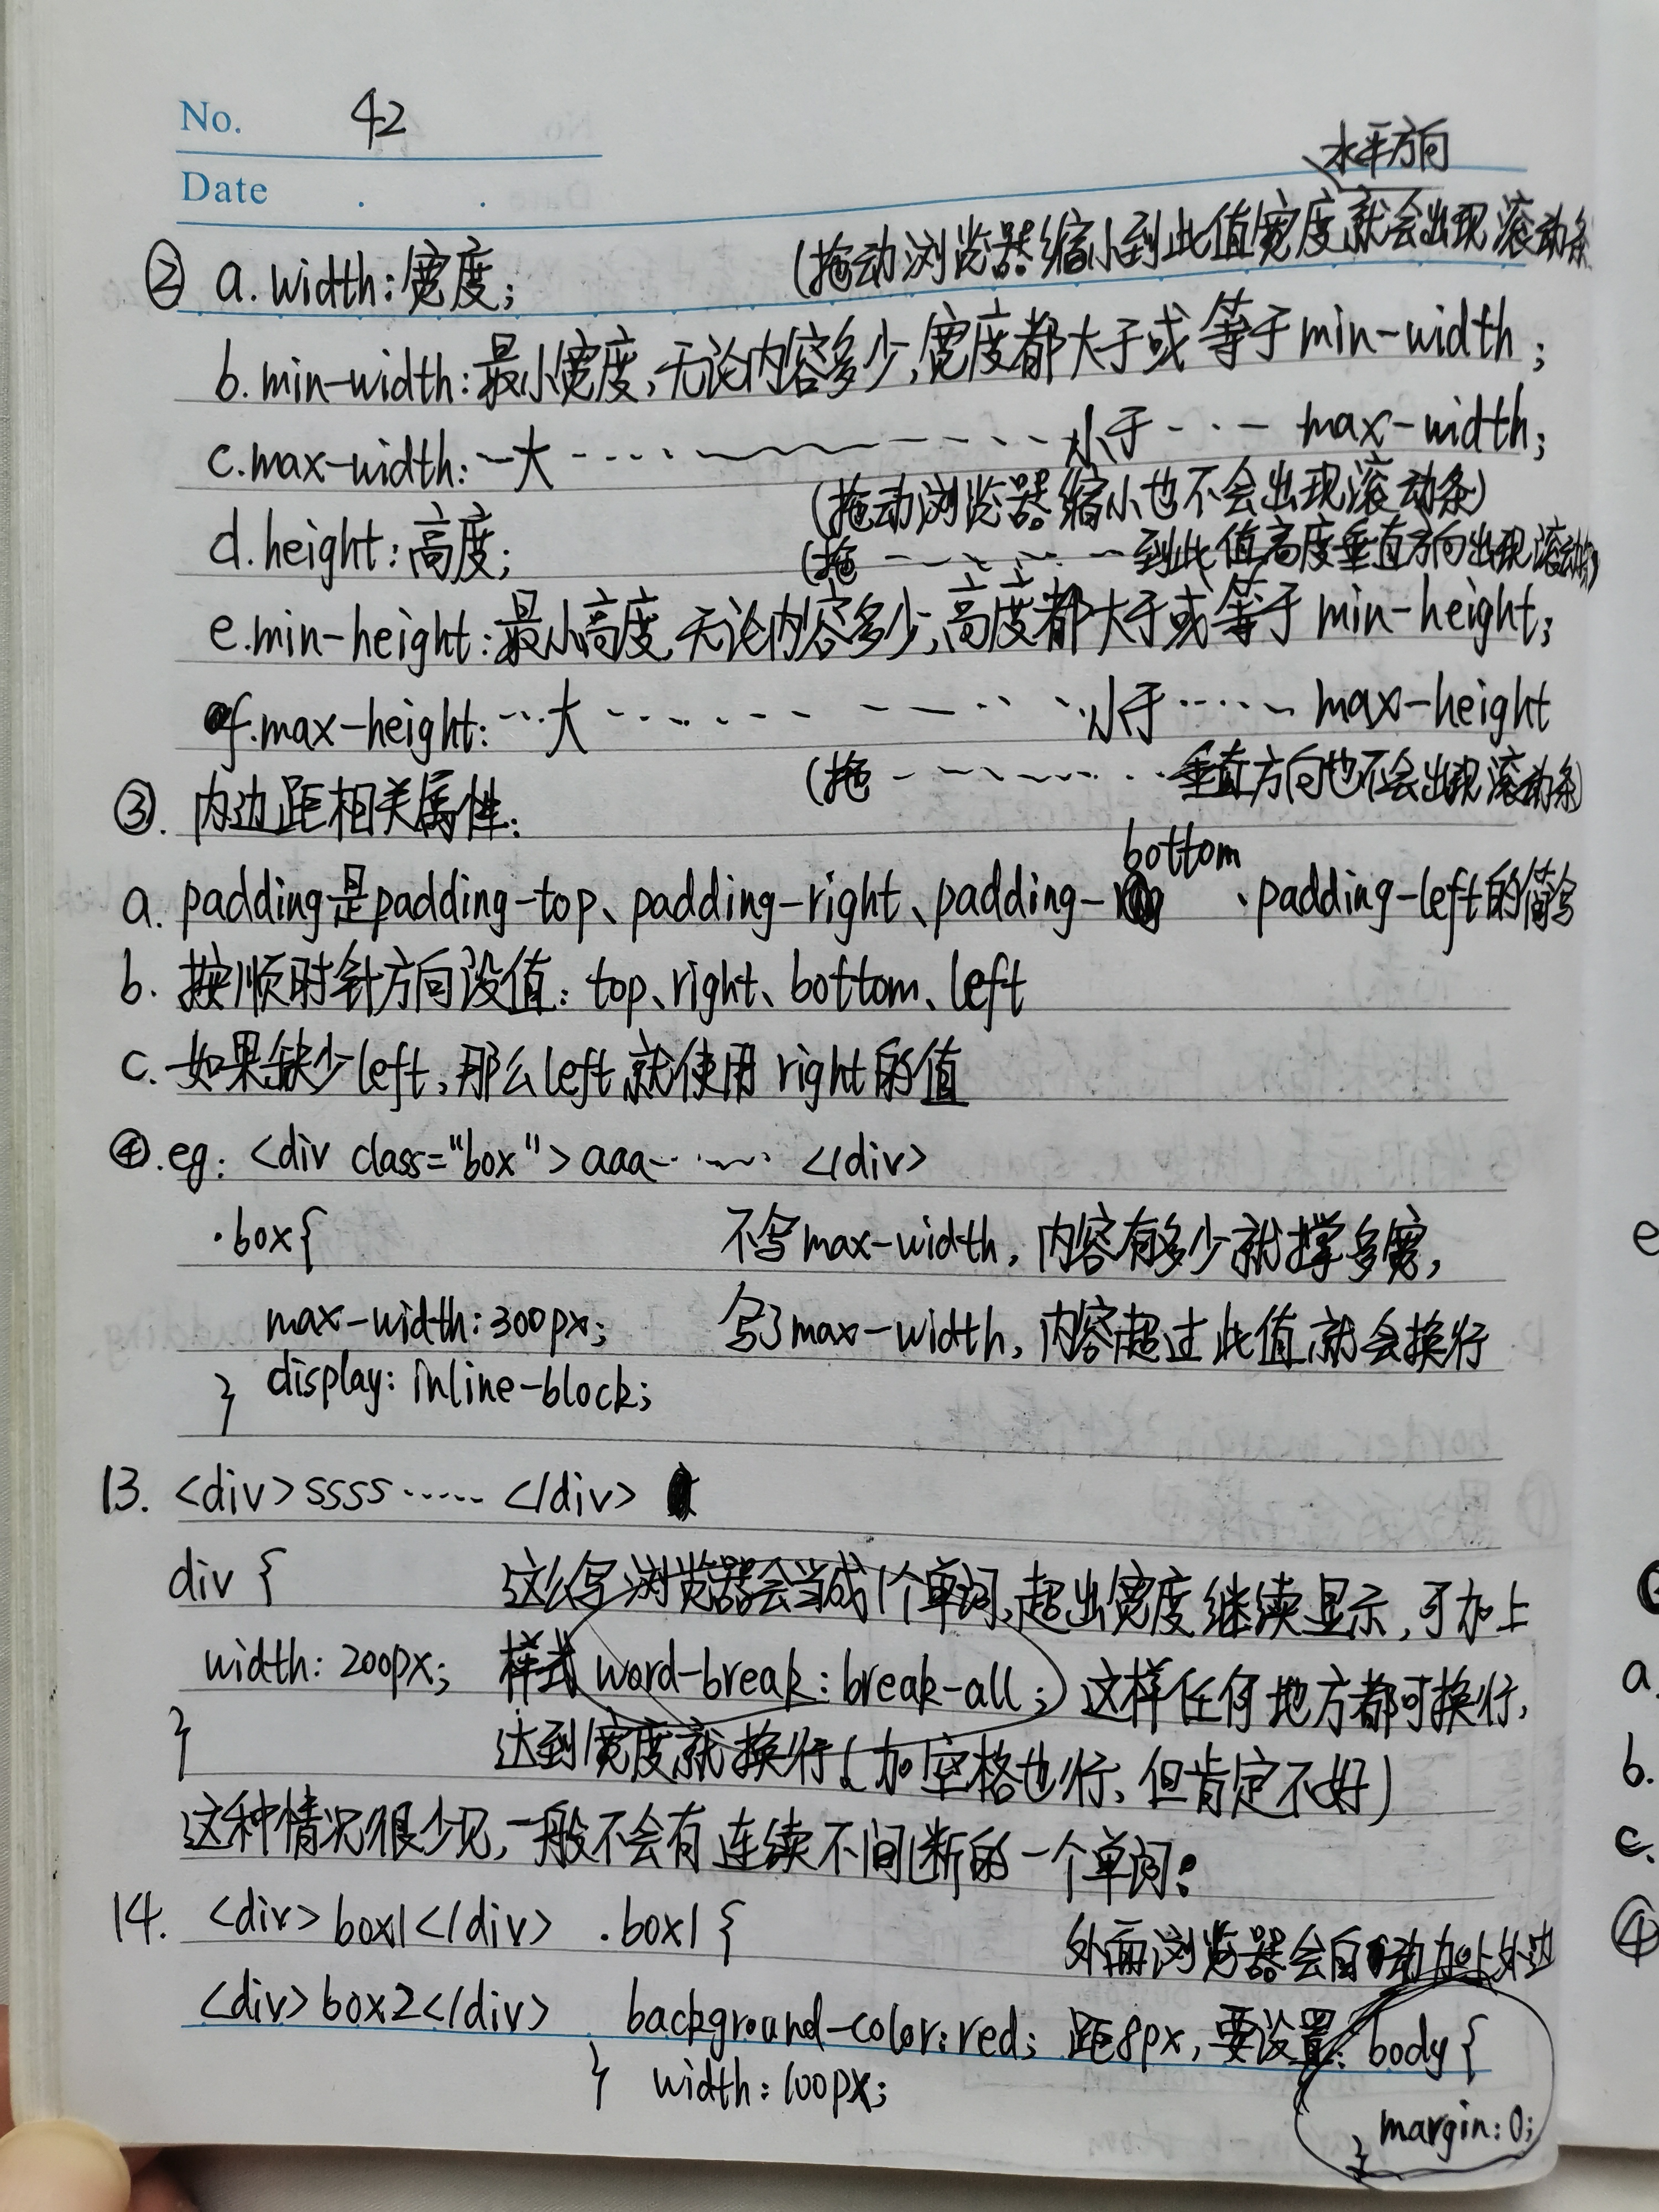 No. 42
Date . .
水平方向
(拖动浏览器缩小到此值宽度就会出现滚动条
② a. width:宽度;
b. min-width:最小宽度,无论内容多少,宽度都大于或等于min-width;
c.max-width:一大……小于…… max-width;
(拖动浏览器缩小也不会出现滚动条)
d.height:高度;
(拖……到此值高度垂直方向出现滚动条)
e.min-height:最小高度,无论内容多少,高度都大于或等于min-height;
f.max-height:…大……小于…… max-height
(拖……垂直方向也不会出现滚动条)
③. 内边距相关属性:
a. padding是padding-top、padding-right、padding-bottom、padding-left的简写
b. 按顺时针方向设值: top、right、bottom、left
c. 如果缺少left,那么left就使用right的值
④.eg: <div class="box">aaa…… </div>
.box{ 不写max-width,内容有多少就撑多宽,
max-width:300px; 写了max-width,内容超过此值就会换行
} display: inline-block;
13. <div>ssss…… </div>
div { 这么写浏览器会当成1个单词,超出宽度继续显示,可加上
width: 200px; 样式word-break:break-all;这样任何地方都可换行,
} 达到宽度就换行(加空格也行,但肯定不好)
这种情况很少见,一般不会有连续不间断的一个单词.
14. <div>box1</div> .box1 { 外面浏览器会自动加上外边
<div>box2</div> background-color:red; 距8px,要设置: body {
} width:100px;
margin:0;
}
e
a.
b.
c.
④